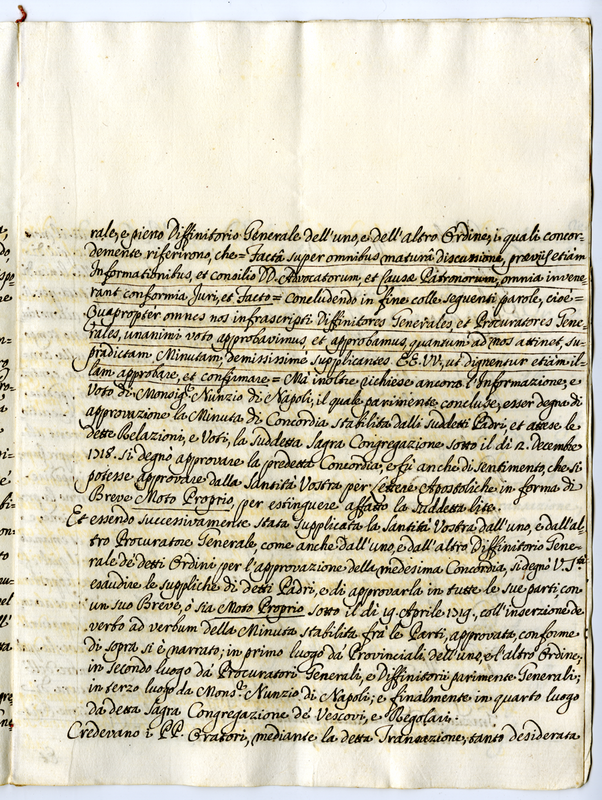 rale, e pieno Diffinitorio Generale dell'uno, e dell'altro Ordine, i quali concor-
demente riferirono, che = Factâ super omnibus maturâ discussione, præviis etiam
Informationibus, et consilio DD. Advocatorum, et Causæ Patronorum, omnia invene-
rant conformia Juri, et Facto = concludendo in fine colle seguenti parole, cioè =
Quapropter omnes nos infrascripti Diffinitores Generales, et Procuratores Gene-
rales, unanimi voto approbavimus, et approbamus, quantum ad nos attinet, su-
pradictam Minutam, demississime supplicantes EE. VV., ut dignentur etiam il-
lam approbare, et confirmare = Mà inoltre richiese ancora l'Informazione, e
Voto di Monsig.r Nunzio di Napoli, il quale parimente concluse, esser degna di
approvazione la Minuta di Concordia stabilita dalli suddetti Padri, et attese le
dette Relazioni, e Voti, la suddetta Sagra Congregazione sotto il dì 2. Decembre
1718. si degnò approvare la predetta Concordia, e fù anche di sentimento, che si
potesse approvare dalla Santità Vostra per Lettere Apostoliche in forma di
Breve Moto Proprio, per estinguere affatto la suddetta lite.
Et essendo successivamente stata supplicata la Santità Vostra dall'uno, e dall'al-
tro Procuratore Generale, come anche dall'uno, e dall'altro Diffinitorio Gene-
rale de' detti Ordini per l'approvazione della medesima Concordia, si degnò V. S.tà
esaudire le suppliche di detti Padri, e di approvarla in tutte le sue parti con
un suo Breve, ò sia Moto Proprio sotto il dì 19. Aprile 1719., coll'inserzione de
verbo ad verbum della Minuta stabilita frà le Parti, approvata, conforme
di sopra si è narrato; in primo luogo dà Provinciali dell'uno, e l'altro Ordine;
in secondo luogo dà Procuratori Generali, e Diffinitorii parimente Generali;
in terzo luogo da Mons.r Nunzio di Napoli; e finalmente in quarto luogo
da detta Sagra Congregazione de' Vescovi, e Regolari.
Credevano i PP. Oratori, mediante la detta Transazione, tanto desiderata